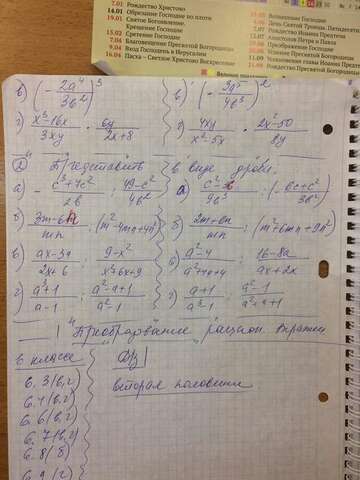 7.01 Рождество Христово
14.01 Обрезание Господне по плоти
19.01 Святое Богоявление.
Крещение Господне
15.02 Сретение Господне
7.04 Благовещение Пресвятой Богородицы
9.04 Вход Господень в Иерусалим
16.04 Пасха – Светлое Христово Воскресение
Вознесение Господне
День Святой Троицы. Пятидесятница
Рождество Иоанна Предтечи
Апостолов Петра и Павла
Преображение Господне
Успение Пресвятой Богородицы
Усекновение главы Иоанна Предтечи
Рождество Пресвятой Богородицы
в) (-2a⁴/3b²)³ в) (-3a⁵/4b³)²
г) (x³-16x)/3xy · 6y/(2x+8) г) 4xy/(x²-5x) · (2x²-50)/8y
② Представить в виде дроби.
а) -(c³+7c²)/2b : (49-c²)/4b² а)
б) : (m²-4mn+4n²) б) (2m+6n)/mn : (m²+6mn+9n²)
в) (ax-3a)/(2x+6) : (9-x²)/(x²+6x+9) в) (a²-4)/(a²+4a+4) : (16-8a)/(ax+2x)
г) (a³+1)/(a-1) : (a²-a+1)/(a²-1) г) (a+1)/(a³-1) : (a²-1)/(a²+a+1)
Преобразование рацион. выражен
в классе Д/з
6.3(в,г) вторая половина
6.4(в,г)
6.6(в,г)
6.7(в,г)
6.8(б)
6.9 (г)